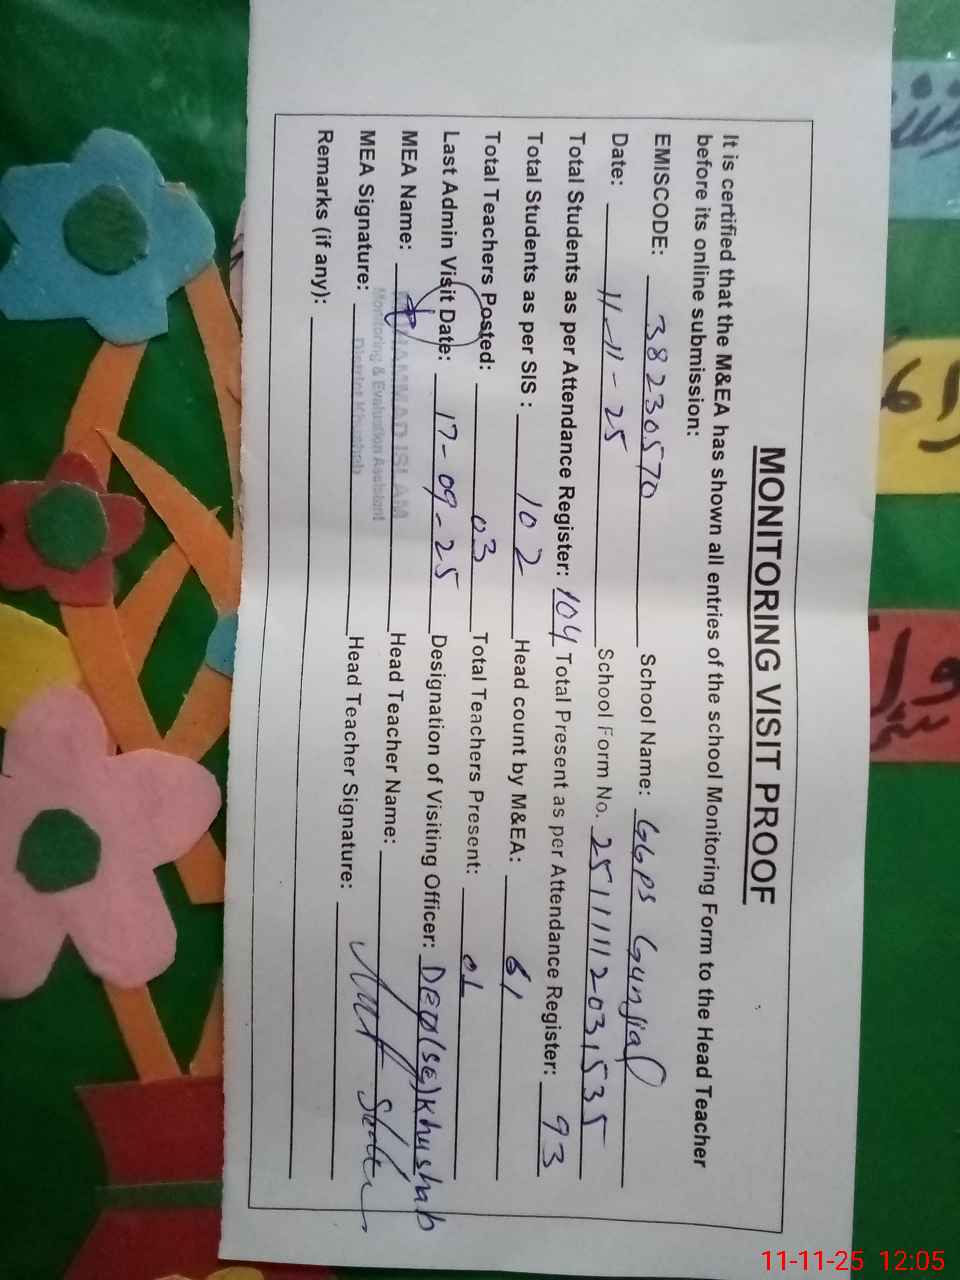 MONITORING VISIT PROOF
It is certified that the M&EA has shown all entries of the school Monitoring Form to the Head Teacher
before its online submission:
EMISCODE: 38230570 School Name: GGPS Gunjial
Date: 11-11-25 School Form No. 251111203,535
Total Students as per Attendance Register: 104 Total Present as per Attendance Register: 93
Total Students as per SIS : 102 Head count by M&EA: 61
Total Teachers Posted: 03 Total Teachers Present: 01
Last Admin Visit Date: 17-09-25 Designation of Visiting Officer: DEO(SE)Khushab
MEA Name: MUHAMMAD ISLAM Head Teacher Name:
Monitoring & Evaluation Assistant
District Khushab
MEA Signature: Head Teacher Signature:
Remarks (if any):
11-11-25 12:05